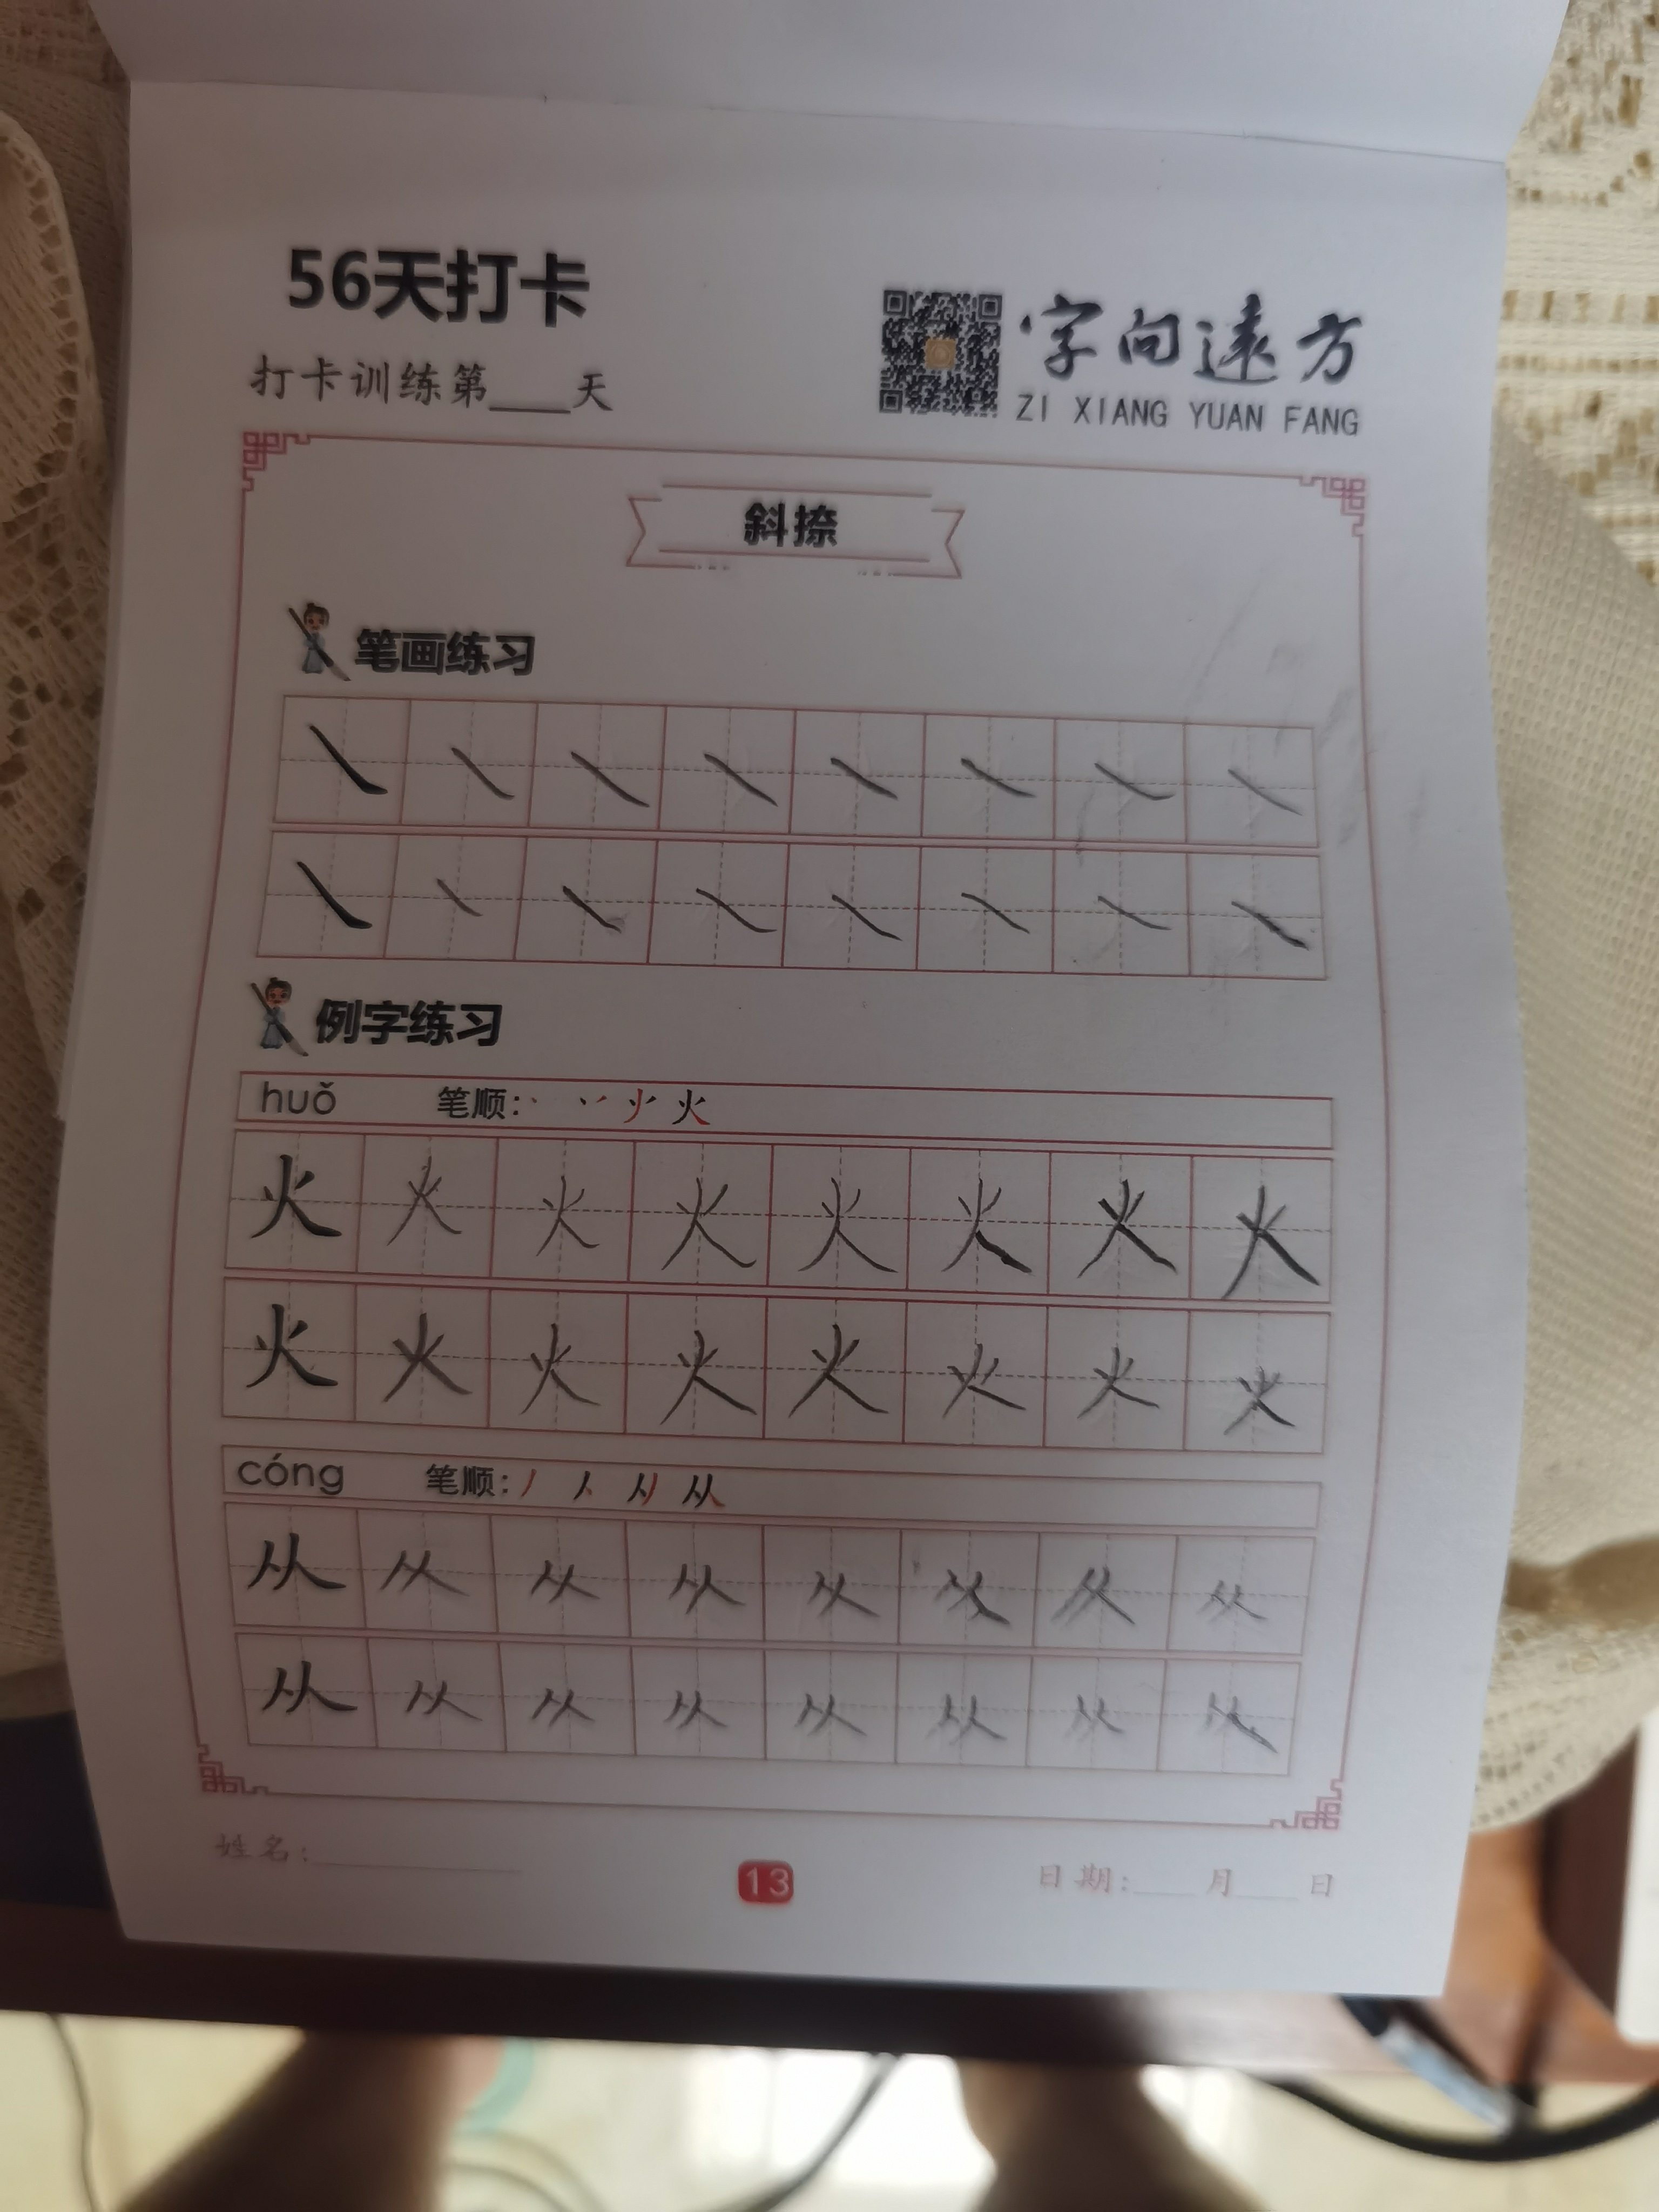 56天打卡
打卡训练第____天
字向遠方
ZI XIANG YUAN FANG
斜捺
笔画练习
㇏ ㇏ ㇏ ㇏ ㇏ ㇏ ㇏ ㇏
㇏ ㇏ ㇏ ㇏ ㇏ ㇏ ㇏ ㇏
例字练习
huǒ 笔顺: 火
火 火 火 火 火 火 火 火
火 火 火 火 火 火 火 火
cóng 笔顺: 从
从 从 从 从 从 从 从 从
从 从 从 从 从 从 从 从
姓名:____________
13
日期:____月____日